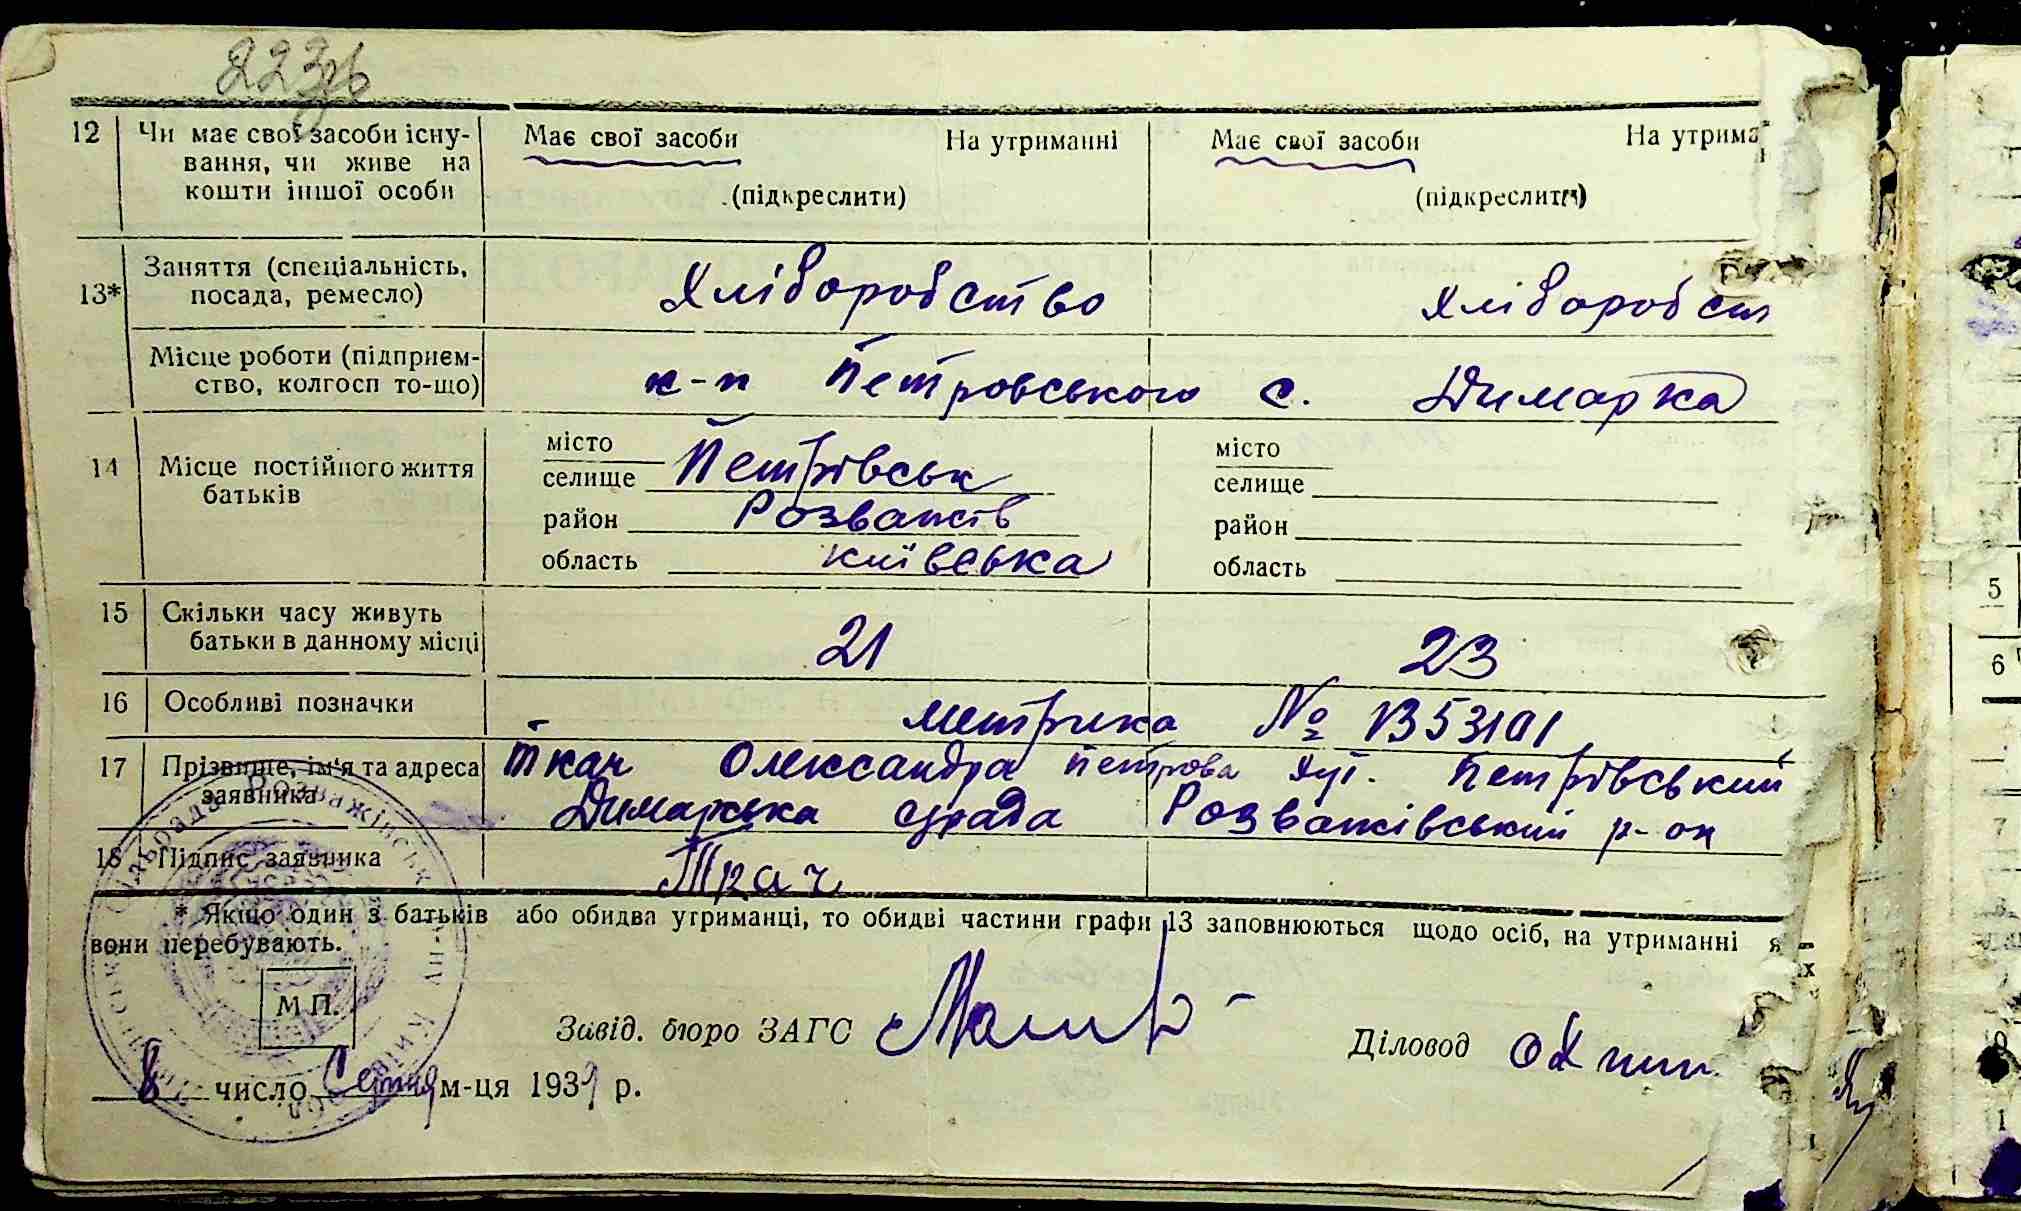 223зв
12 Чи має свої засоби існу- Має свої засоби На утриманні Має свої засоби На утрима
вання, чи живе на
кошти іншої особи (підкреслити) (підкреслити)
Заняття (спеціальність,
13* посада, ремесло) Хліборобство Хліборобст
Місце роботи (підприєм-
ство, колгосп то-що) к-п Петровського с. Димарка
14 Місце постійного життя місто місто
батьків селище Петрівськ селище
район Розважів район
область київська область
15 Скільки часу живуть
батьки в данному місці 21 23
16 Особливі позначки - метрика № В53101
17 Прізвище, ім'я та адреса Ткач Олександра Петрова хут. Петрівський
заявника Димарська срада Розважівський р-он
18 Підпис заявника Ткач
* Якщо один з батьків або обидва утриманці, то обидві частини графи 13 заповнюються щодо осіб, на утриманні я-
вони перебувають. их
М.П.
Завід. бюро ЗАГС Діловод
8 число Серпня м-ця 1939 р.
5
6
7